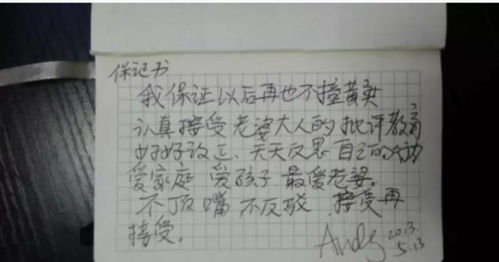 保证书
我保证以后再也不撞黄灯
认真接受老婆大人的批评教育
好好改正、天天反思自己的
爱家庭 爱孩子 最爱老婆。
不顶嘴 不反驳 接受再
接受。
Andy 2013.
5.13